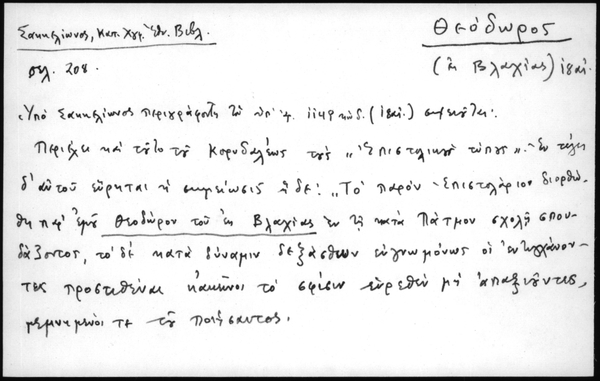 Σακκελίωνος, Κατ. Χγρ. Ἐθν. Βιβλ.
Θεόδωρος
σελ. 208.
(ἐκ Βλαχίας) ιηʹ αἰ.
Ὑπὸ Σακκελίωνος περιγράφοντος τὸν ὑπ' ἀρ. κώδ. (ιηʹ αἰ.) σημειοῦται:
Περιέχει καὶ οὗτος τοῦ Κορυδαλέως τοὺς „Ἐπιστολικοὺς τύπους". Ἐν τέλει
δ' αὐτοῦ εὕρηται ἡ σημείωσις ἥδε: „Τὸ παρὸν Ἐπιστολάριον διορθώ-
θη παρ' ἐμοῦ Θεοδώρου τοῦ ἐκ Βλαχίας ἐν τῇ κατὰ Πάτμον σχολῇ σπου-
δάζοντος, τὸ δὲ κατὰ δύναμιν δεξάσθων εὐγνωμόνως οἱ ἐντυγχάνον-
τες προστιθέναι κἀκεῖνοι τὸ σφίσιν εὑρεθὲν μὴ ἀπαξιοῦντες,
μεμνημένοι τε τοῦ ποιήσαντος.